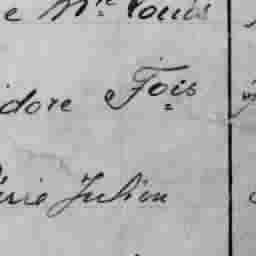 e Mr. Louis
idore Fois
érie Julien